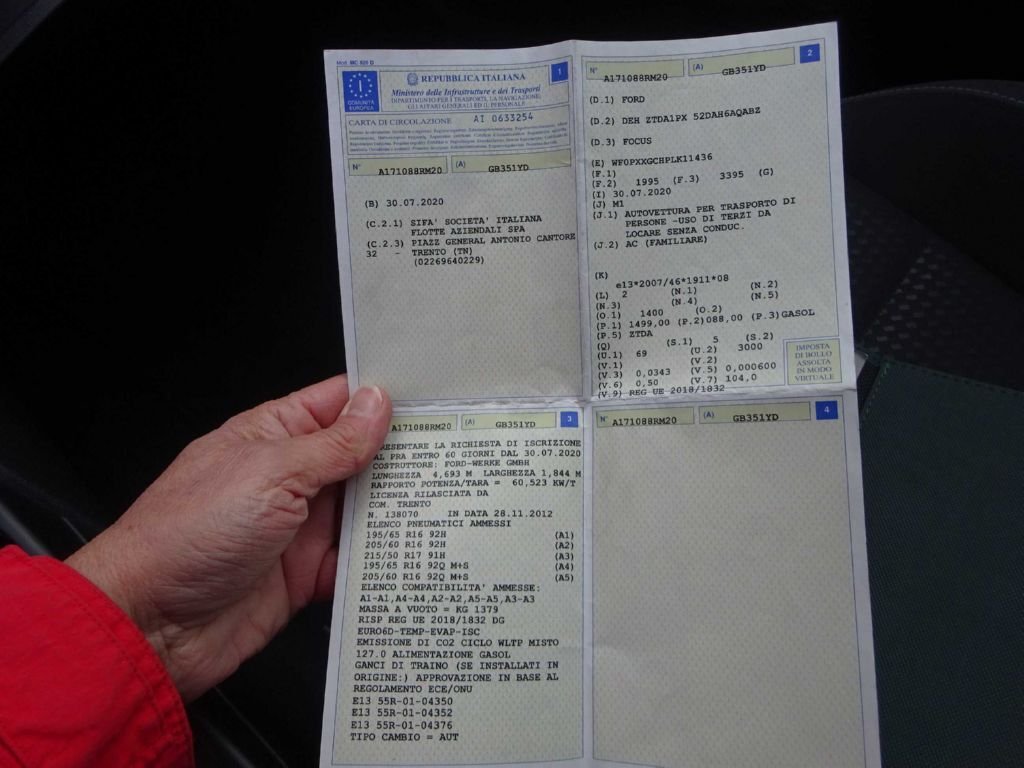 Mod. MC 820 D
1
COMUNITÀ
EUROPEA
I
REPUBBLICA ITALIANA
Ministero delle Infrastrutture e dei Trasporti
DIPARTIMENTO PER I TRASPORTI, LA NAVIGAZIONE,
GLI AFFARI GENERALI ED IL PERSONALE
CARTA DI CIRCOLAZIONE AI 0633254
N° A171088RM20 (A) GB351YD
(B) 30.07.2020
(C.2.1) SIFA' SOCIETA' ITALIANA
FLOTTE AZIENDALI SPA
(C.2.3) PIAZZ GENERAL ANTONIO CANTORE
32 - TRENTO (TN)
(02269640229)
2
N° A171088RM20 (A) GB351YD
(D.1) FORD
(D.2) DEH ZTDA1PX 52DAH6AQABZ
(D.3) FOCUS
(E) WF0PXXGCHPLK11436
(F.1)
(F.2) 1995 (F.3) 3395 (G)
(I) 30.07.2020
(J) M1
(J.1) AUTOVETTURA PER TRASPORTO DI
PERSONE -USO DI TERZI DA
LOCARE SENZA CONDUC.
(J.2) AC (FAMILIARE)
(K)
e13*2007/46*1911*08
(L) 2 (N.1) (N.2)
(N.3) (N.4) (N.5)
(O.1) 1400 (O.2)
(P.1) 1499,00 (P.2)088,00 (P.3)GASOL
(P.5) ZTDA
(Q) (S.1) 5 (S.2)
(U.1) 69 (U.2) 3000
(V.1) (V.2)
(V.3) 0,0343 (V.5) 0,000600
(V.6) 0,50 (V.7) 104,0
(V.9) REG UE 2018/1832
IMPOSTA
DI BOLLO
ASSOLTA
IN MODO
VIRTUALE
3
A171088RM20 (A) GB351YD
RESENTARE LA RICHIESTA DI ISCRIZIONE
AL PRA ENTRO 60 GIORNI DAL 30.07.2020
COSTRUTTORE: FORD-WERKE GMBH
LUNGHEZZA 4,693 M LARGHEZZA 1,844 M
RAPPORTO POTENZA/TARA = 60,523 KW/T
LICENZA RILASCIATA DA
COM. TRENTO
N. 138070 IN DATA 28.11.2012
ELENCO PNEUMATICI AMMESSI
195/65 R16 92H (A1)
205/60 R16 92H (A2)
215/50 R17 91H (A3)
195/65 R16 92Q M+S (A4)
205/60 R16 92Q M+S (A5)
ELENCO COMPATIBILITA' AMMESSE:
A1-A1,A4-A4,A2-A2,A5-A5,A3-A3
MASSA A VUOTO = KG 1379
RISP REG UE 2018/1832 DG
EURO6D-TEMP-EVAP-ISC
EMISSIONE DI CO2 CICLO WLTP MISTO
127.0 ALIMENTAZIONE GASOL
GANCI DI TRAINO (SE INSTALLATI IN
ORIGINE:) APPROVAZIONE IN BASE AL
REGOLAMENTO ECE/ONU
E13 55R-01-04350
E13 55R-01-04352
E13 55R-01-04376
TIPO CAMBIO = AUT
4
N° A171088RM20 (A) GB351YD